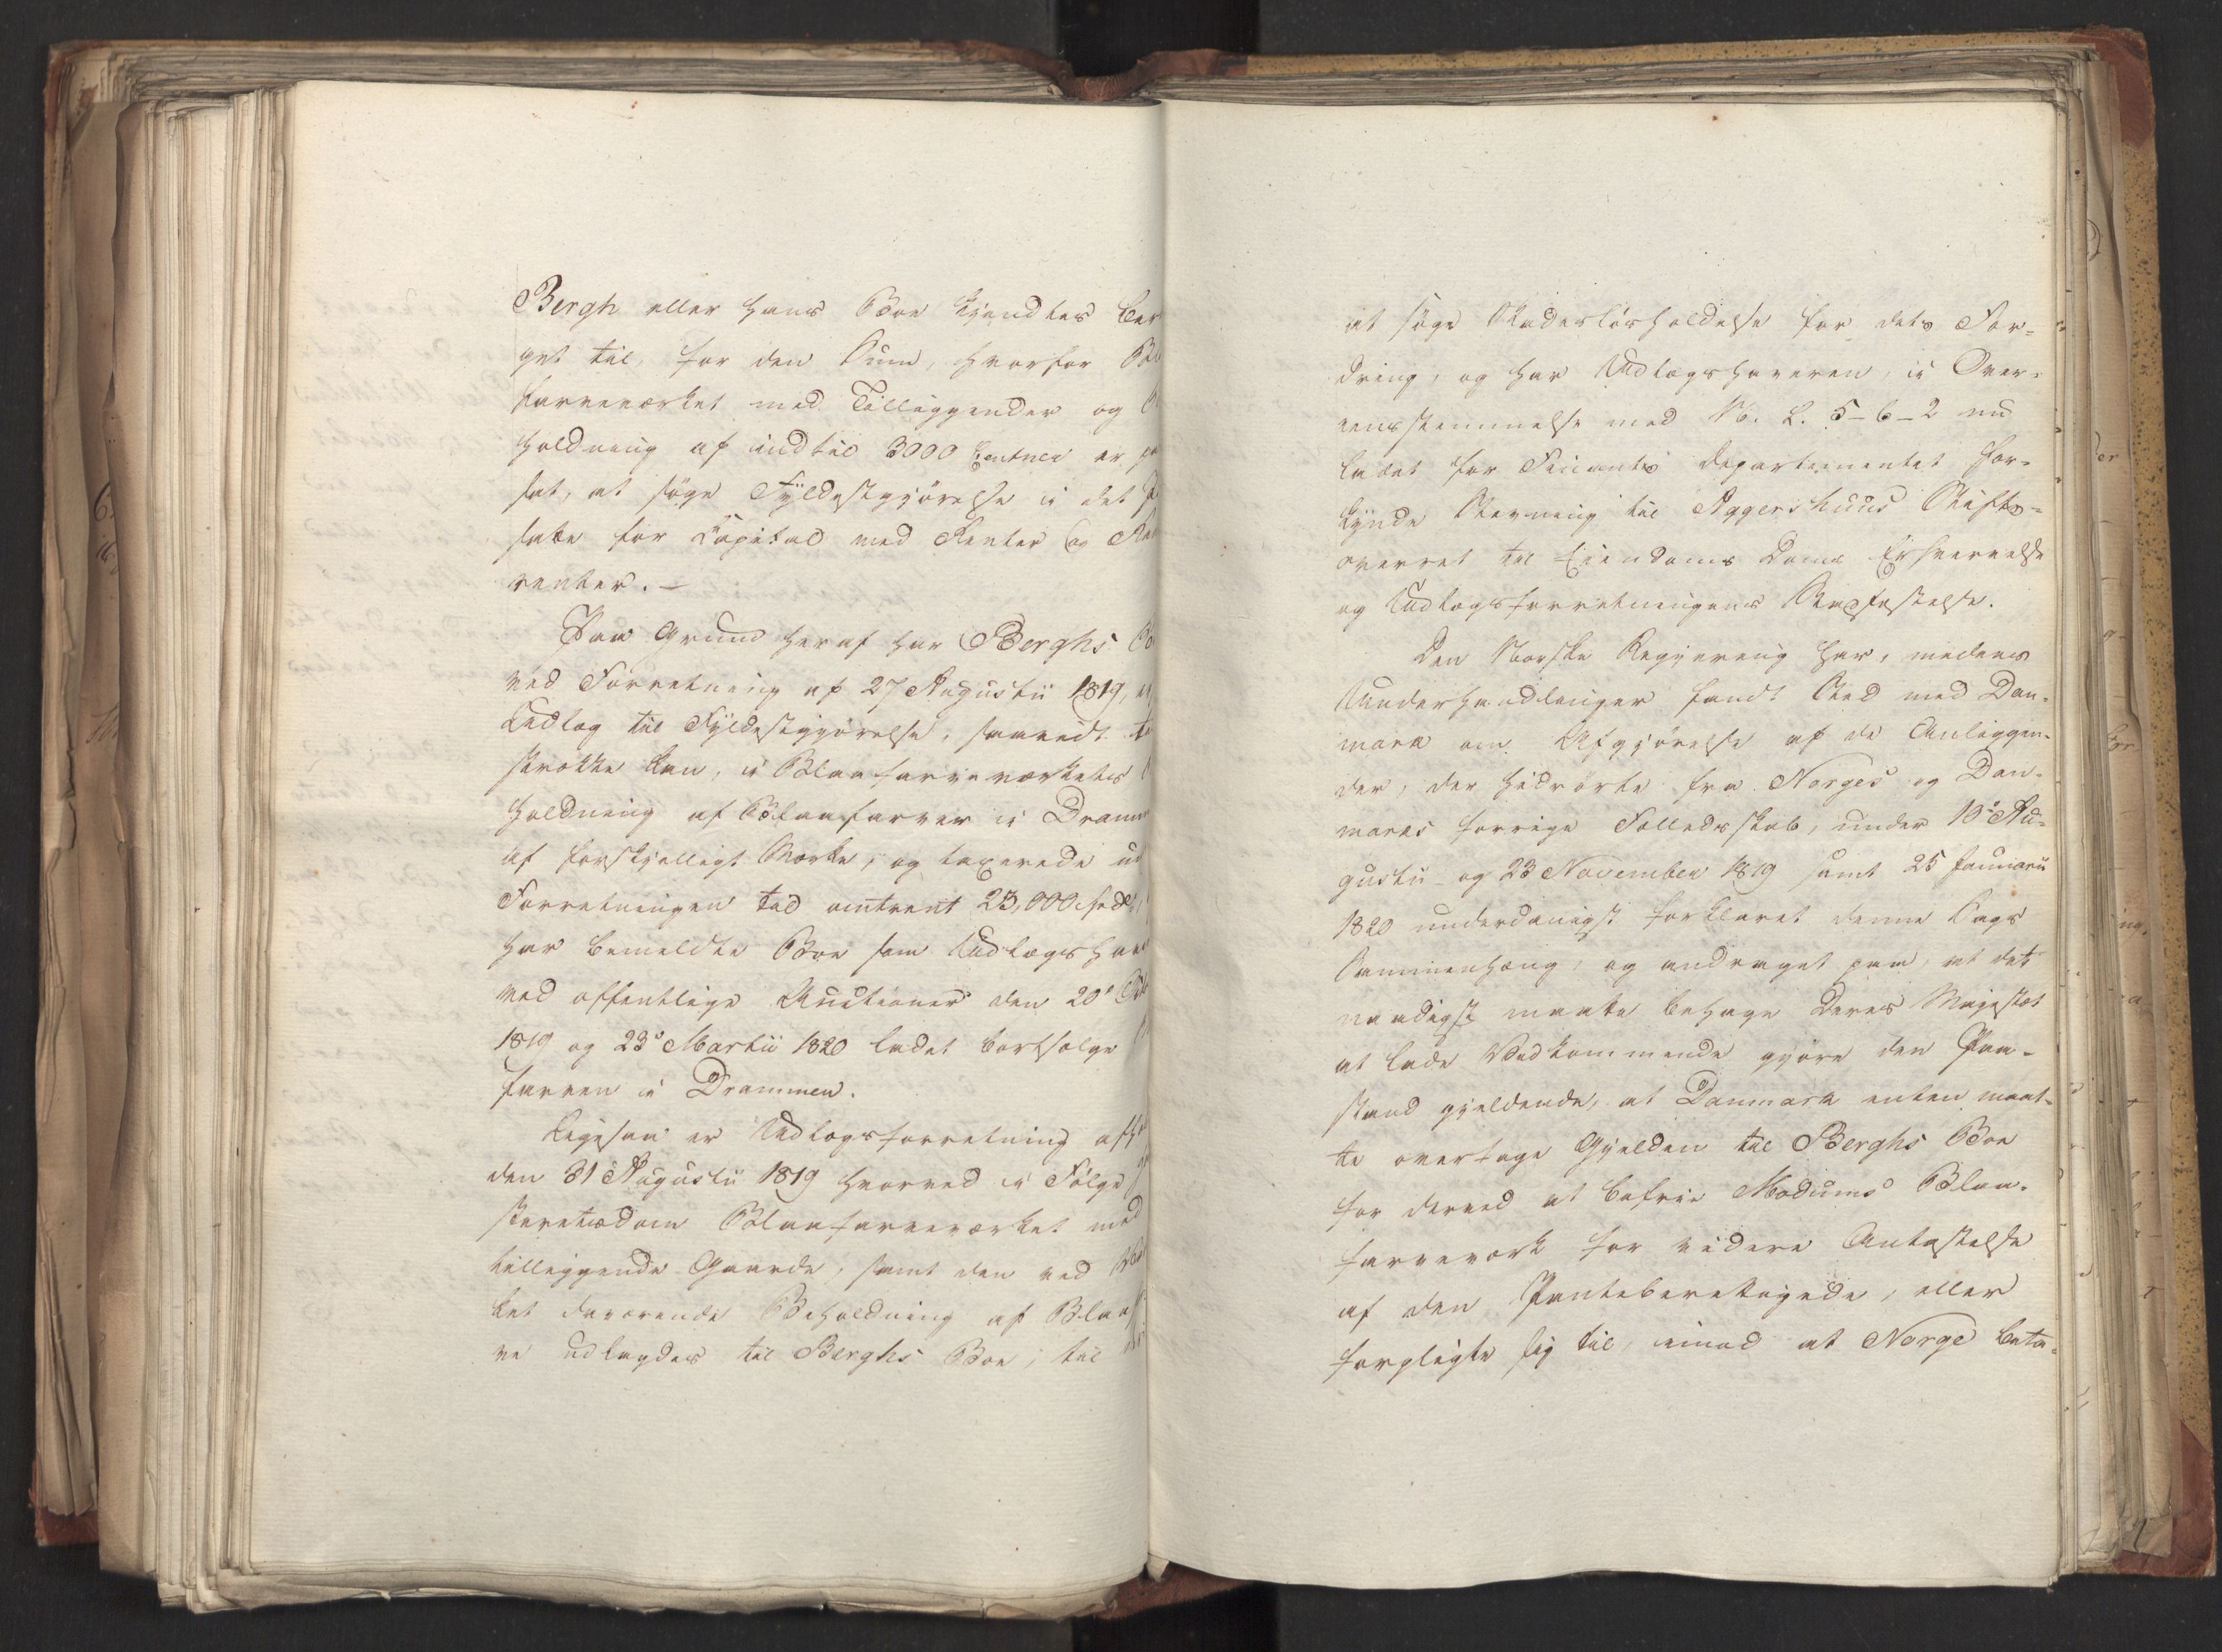 Bergh eller hans Boe kjendtes ber
get til, for den Sum, hvorfor Bl
farveværket med Tilliggender og
holdning af indtil 3000 Centner er p
sat, at søge Fyldestgjørelse i det
satte for Capital med Renter og Re
renter.–
Paa Grund heraf har Berghs B
ved Forretning af 27 Augustii 1819,
Udlæg til Fyldestgjørelse, saavidt
strække kan, i Blaafarveværkets
holdning af Blaafarver i Dramm
af forskjelligt Mærke, og taxerede
Forretningen tid omtrent 23,000
har bemeldte Boe som Udlægshav
ved offentlige Auctioner den 20de
1819 og 23de Martii 1820 ladet bortsælge
farven i Drammen.
Ligesaa er Udlægsforretning afh
den 31 Augustii 1819 hvorved i Følge
steretsdom Blaafarveværket med
tilliggende Gaarde, samt den ved
ket daværende Beholdning af Blaaf
ve udlagdes til Berghs Boe, til
at søge Skadesløsholdelse for dets For=
dring, og har Udlægshaveren, i Over=
eensstemmelse med N. L. 5–6–2 nu
ladet for Finants Departementet for=
kynde Stevning til Aggershuus Stifts=
overret til Eiendoms Doms Erhvervelse
og Udlægsforretningens Stadfæstelse.
Den Norske Regjering har, medens
Underhandlinger fandt Sted med Dan=
mark om Afgjørelse af de Anliggen=
der, der hidrørte fra Norges og Dan=
marks forrige Fælledsskab, under 10de Au=
gustii og 23 November 1819 samt 25 Januarii
1820 underdanigst forklaret denne Sags
Sammenhæng, og andraget paa, at det
naadigst maatte behage Deres Majestæt
at lade Vedkommende gjøre den Paa=
stand gjeldende, at Danmark enten maat=
te overtage Gjelden til Berghs Boe
for derved at befrie Modums Blaa=
farveværk for videre Antastelse
af den Panteberettigede, eller
forpligte sig til, imod at Norge beta=